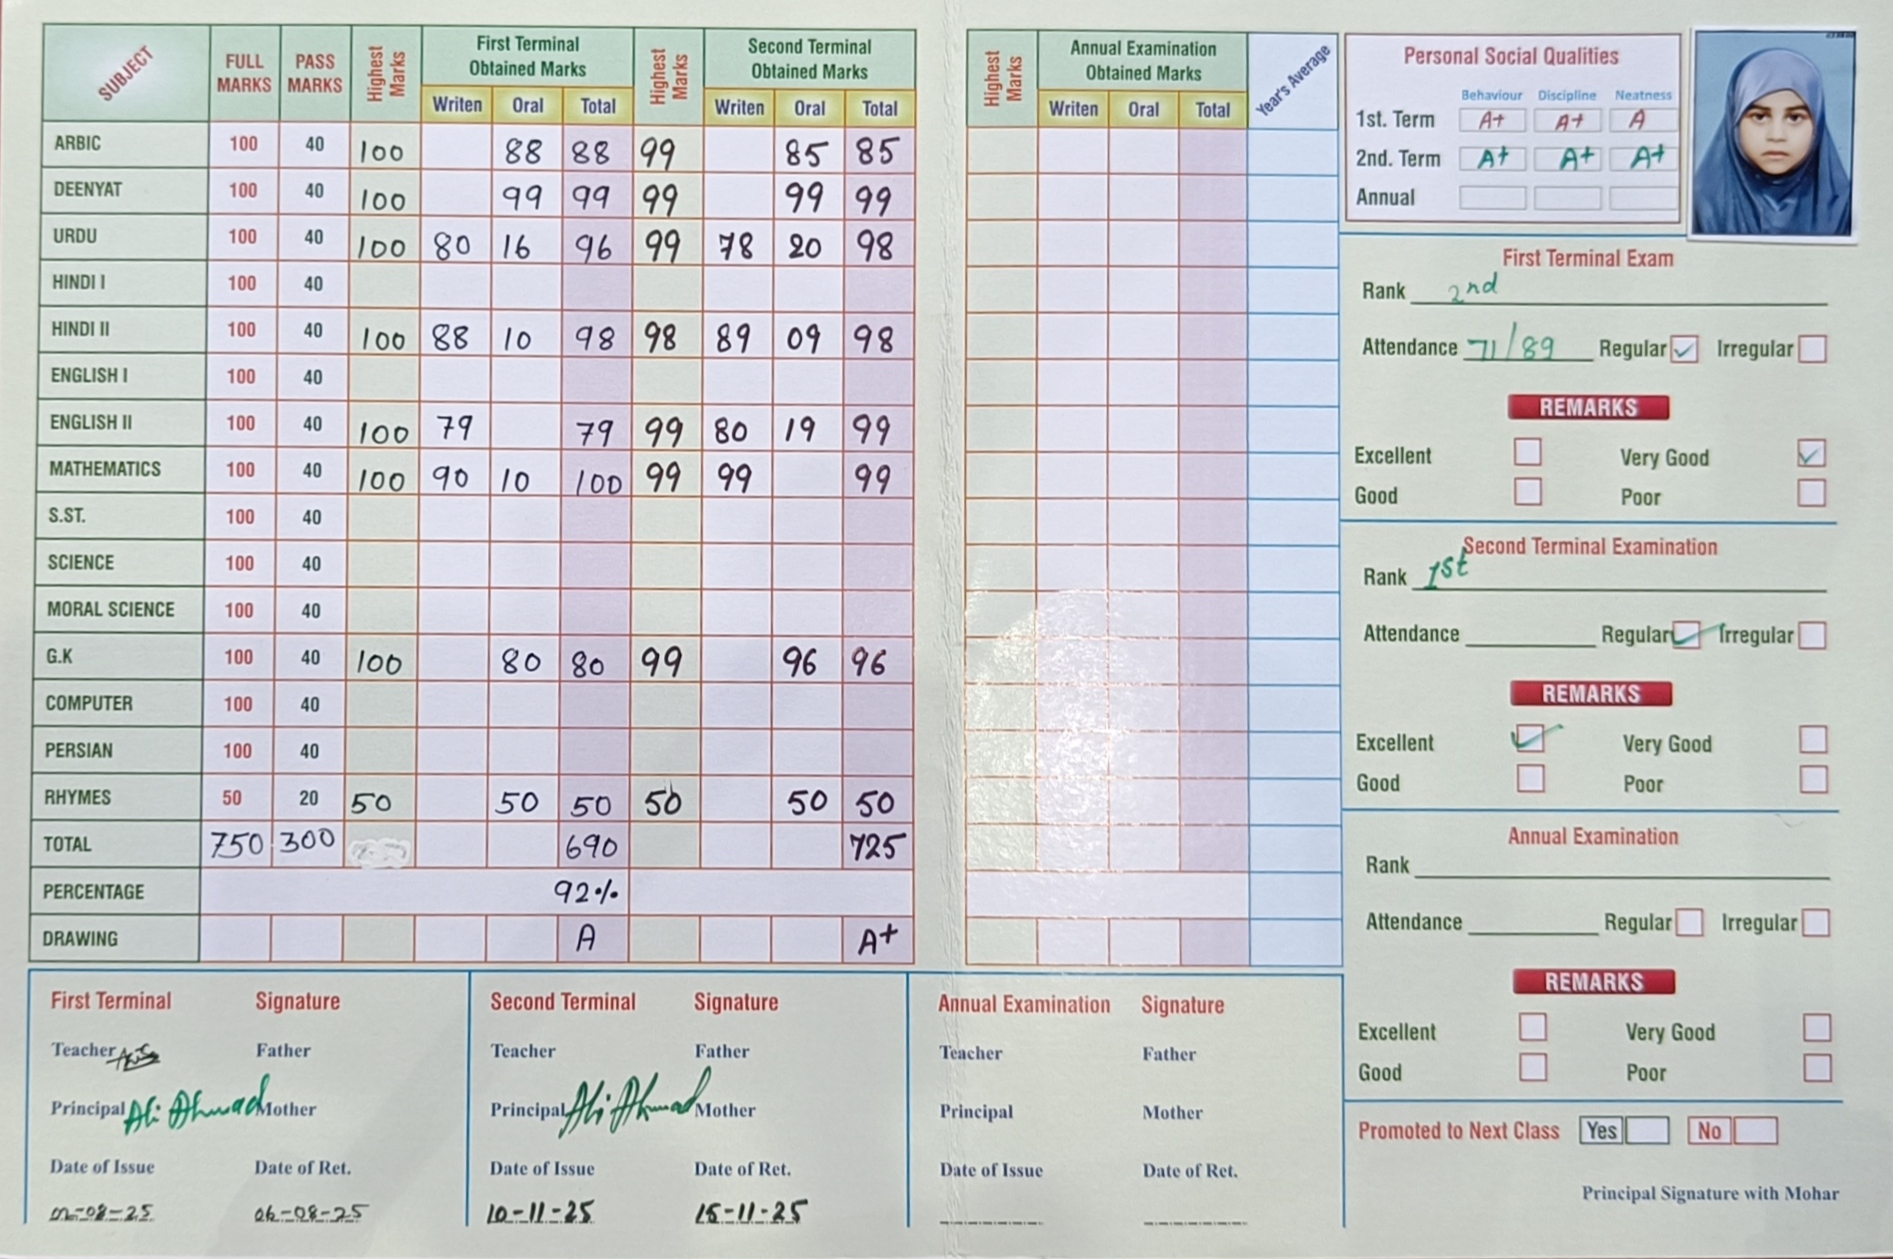 SUBJECT FULL MARKS PASS MARKS Highest Marks First Terminal Obtained Marks Highest Marks Second Terminal Obtained Marks
Writen Oral Total Writen Oral Total
ARBIC 100 40 100 88 88 99 85 85
DEENYAT 100 40 100 99 99 99 99 99
URDU 100 40 100 80 16 96 99 78 20 98
HINDI I 100 40
HINDI II 100 40 100 88 10 98 98 89 09 98
ENGLISH I 100 40
ENGLISH II 100 40 100 79 79 99 80 19 99
MATHEMATICS 100 40 100 90 10 100 99 99 99
S.ST. 100 40
SCIENCE 100 40
MORAL SCIENCE 100 40
G.K 100 40 100 80 80 99 96 96
COMPUTER 100 40
PERSIAN 100 40
RHYMES 50 20 50 50 50 50 50 50
TOTAL 750 300 690 725
PERCENTAGE 92%
DRAWING A A+
Highest Marks Annual Examination Obtained Marks Year's Average
Writen Oral Total
Personal Social Qualities
Behaviour Discipline Neatness
1st. Term A+ A+ A
2nd. Term A+ A+ A+
Annual
First Terminal Exam
Rank 2nd
Attendance 71/89 Regular Irregular
REMARKS
Excellent Very Good
Good Poor
Second Terminal Examination
Rank 1st
Attendance Regular Irregular
REMARKS
Excellent Very Good
Good Poor
Annual Examination
Rank
Attendance Regular Irregular
REMARKS
Excellent Very Good
Good Poor
Promoted to Next Class Yes No
Principal Signature with Mohar
First Terminal Signature
Teacher Father
Principal Ali Ahmad Mother
Date of Issue Date of Ret.
06-08-25
Second Terminal Signature
Teacher Father
Principal Ali Ahmad Mother
Date of Issue Date of Ret.
10-11-25 15-11-25
Annual Examination Signature
Teacher Father
Principal Mother
Date of Issue Date of Ret.